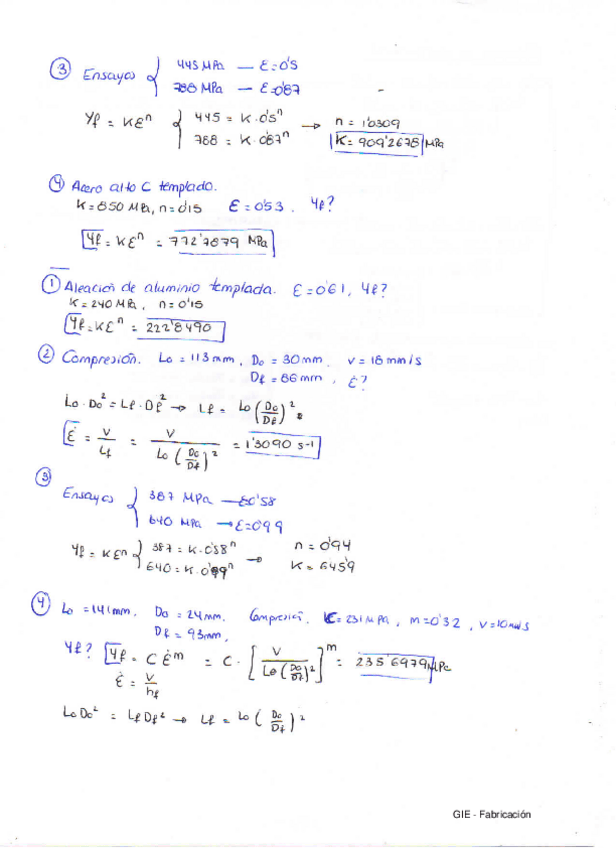 ③ Ensayos { 445 MPa — ε=0'5
788 MPa — ε=0'87
Yf = Kεⁿ { 445 = K·0'5ⁿ → n = 1'0309
788 = K·0'87ⁿ K = 909'2678 MPa
④ Acero alto C templado.
K=850 MPa, n=0'15 ε=0'53. Yf?
Yf = Kεⁿ = 772'7879 MPa
① Aleación de aluminio templada. ε=0'61, Yf?
K=240 MPa, n=0'15
Yf=Kεⁿ = 222'8490
② Compresión. Lo = 113mm, Do = 30mm. V = 18 mm/s
Df = 86mm, ε̇?
Lo·Do² = Lf·Df² → Lf = Lo(Do/Df)²
ε̇ = V/Lf = V/Lo(Do/Df)² = 1'3090 s⁻¹
③
Ensayos { 387 MPa — ε0'58
640 MPa → ε=0'99
Yf = Kεⁿ { 387 = K·0'58ⁿ → n = 0'94
640 = K·0'99ⁿ K = 645'9
④ Lo = 141mm. Do = 24mm. Compresión. C=231 MPa, m=0'32, V=10mm/s
Df = 93mm,
Yf? Yf = C ε̇ᵐ = C·[V/Lo(Do/Df)²]ᵐ = 235'6979 MPa
ε̇ = V/hf
LoDo² = LfDf² → Lf = Lo(Do/Df)²
GIE - Fabricación